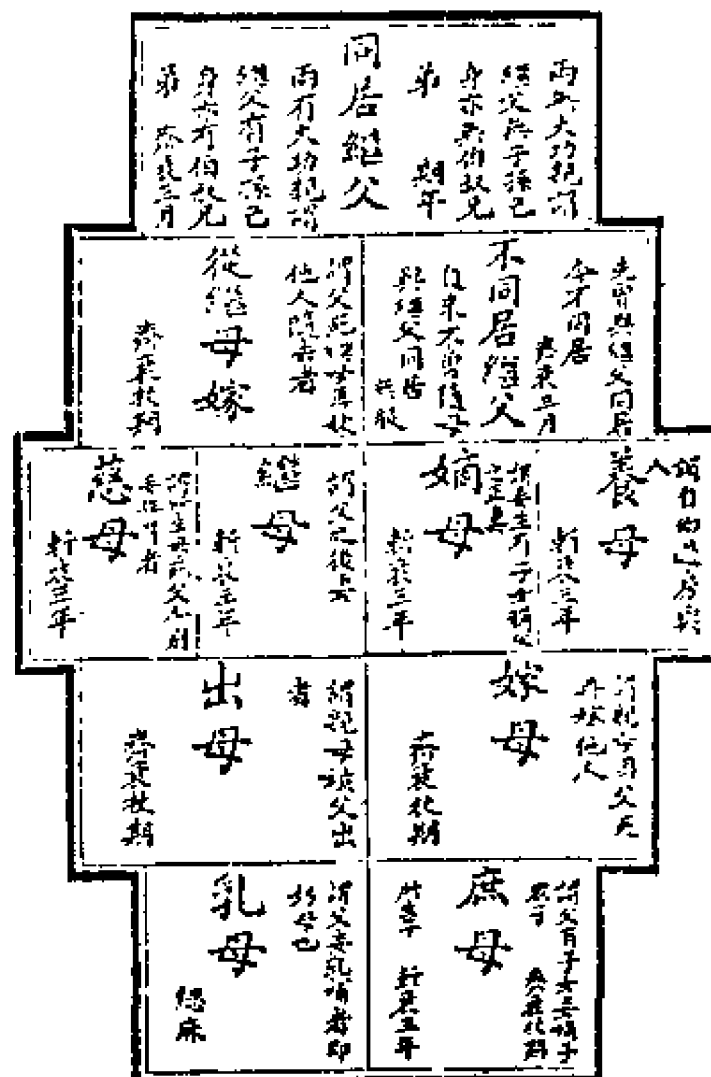 兩無大功親謂
繼父無子孫己
身亦無伯叔兄
弟 期年
同居繼父
兩有大功親謂
繼父有子孫己
身亦有伯叔兄
弟 齊衰三月
先曾與繼父同居
今不同居
齊衰三月
不同居繼父
自來不曾隨母
與繼父同居
無服
謂父死繼母再嫁
他人隨去者
從繼母嫁
齊衰杖期
謂自幼過房與
人
養母
斬衰三年
謂妾生子女稱父
之正妻
嫡母
斬衰三年
謂父之後妻
繼母
斬衰三年
謂所生母死父令別
妾撫育者
慈母
斬衰三年
謂親母因父死
再嫁他人
嫁母
齊衰杖期
謂親母被父出
者
出母
齊衰杖期
謂父有子女妾嫡子
眾子 齊衰杖期
庶母
所生子 斬衰三年
謂父妾乳哺者即
奶母也
乳母
緦麻